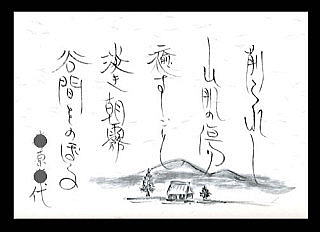 削られし
山肌の傷
癒すごと
淡き朝霧
谷間をのぼる
京 代